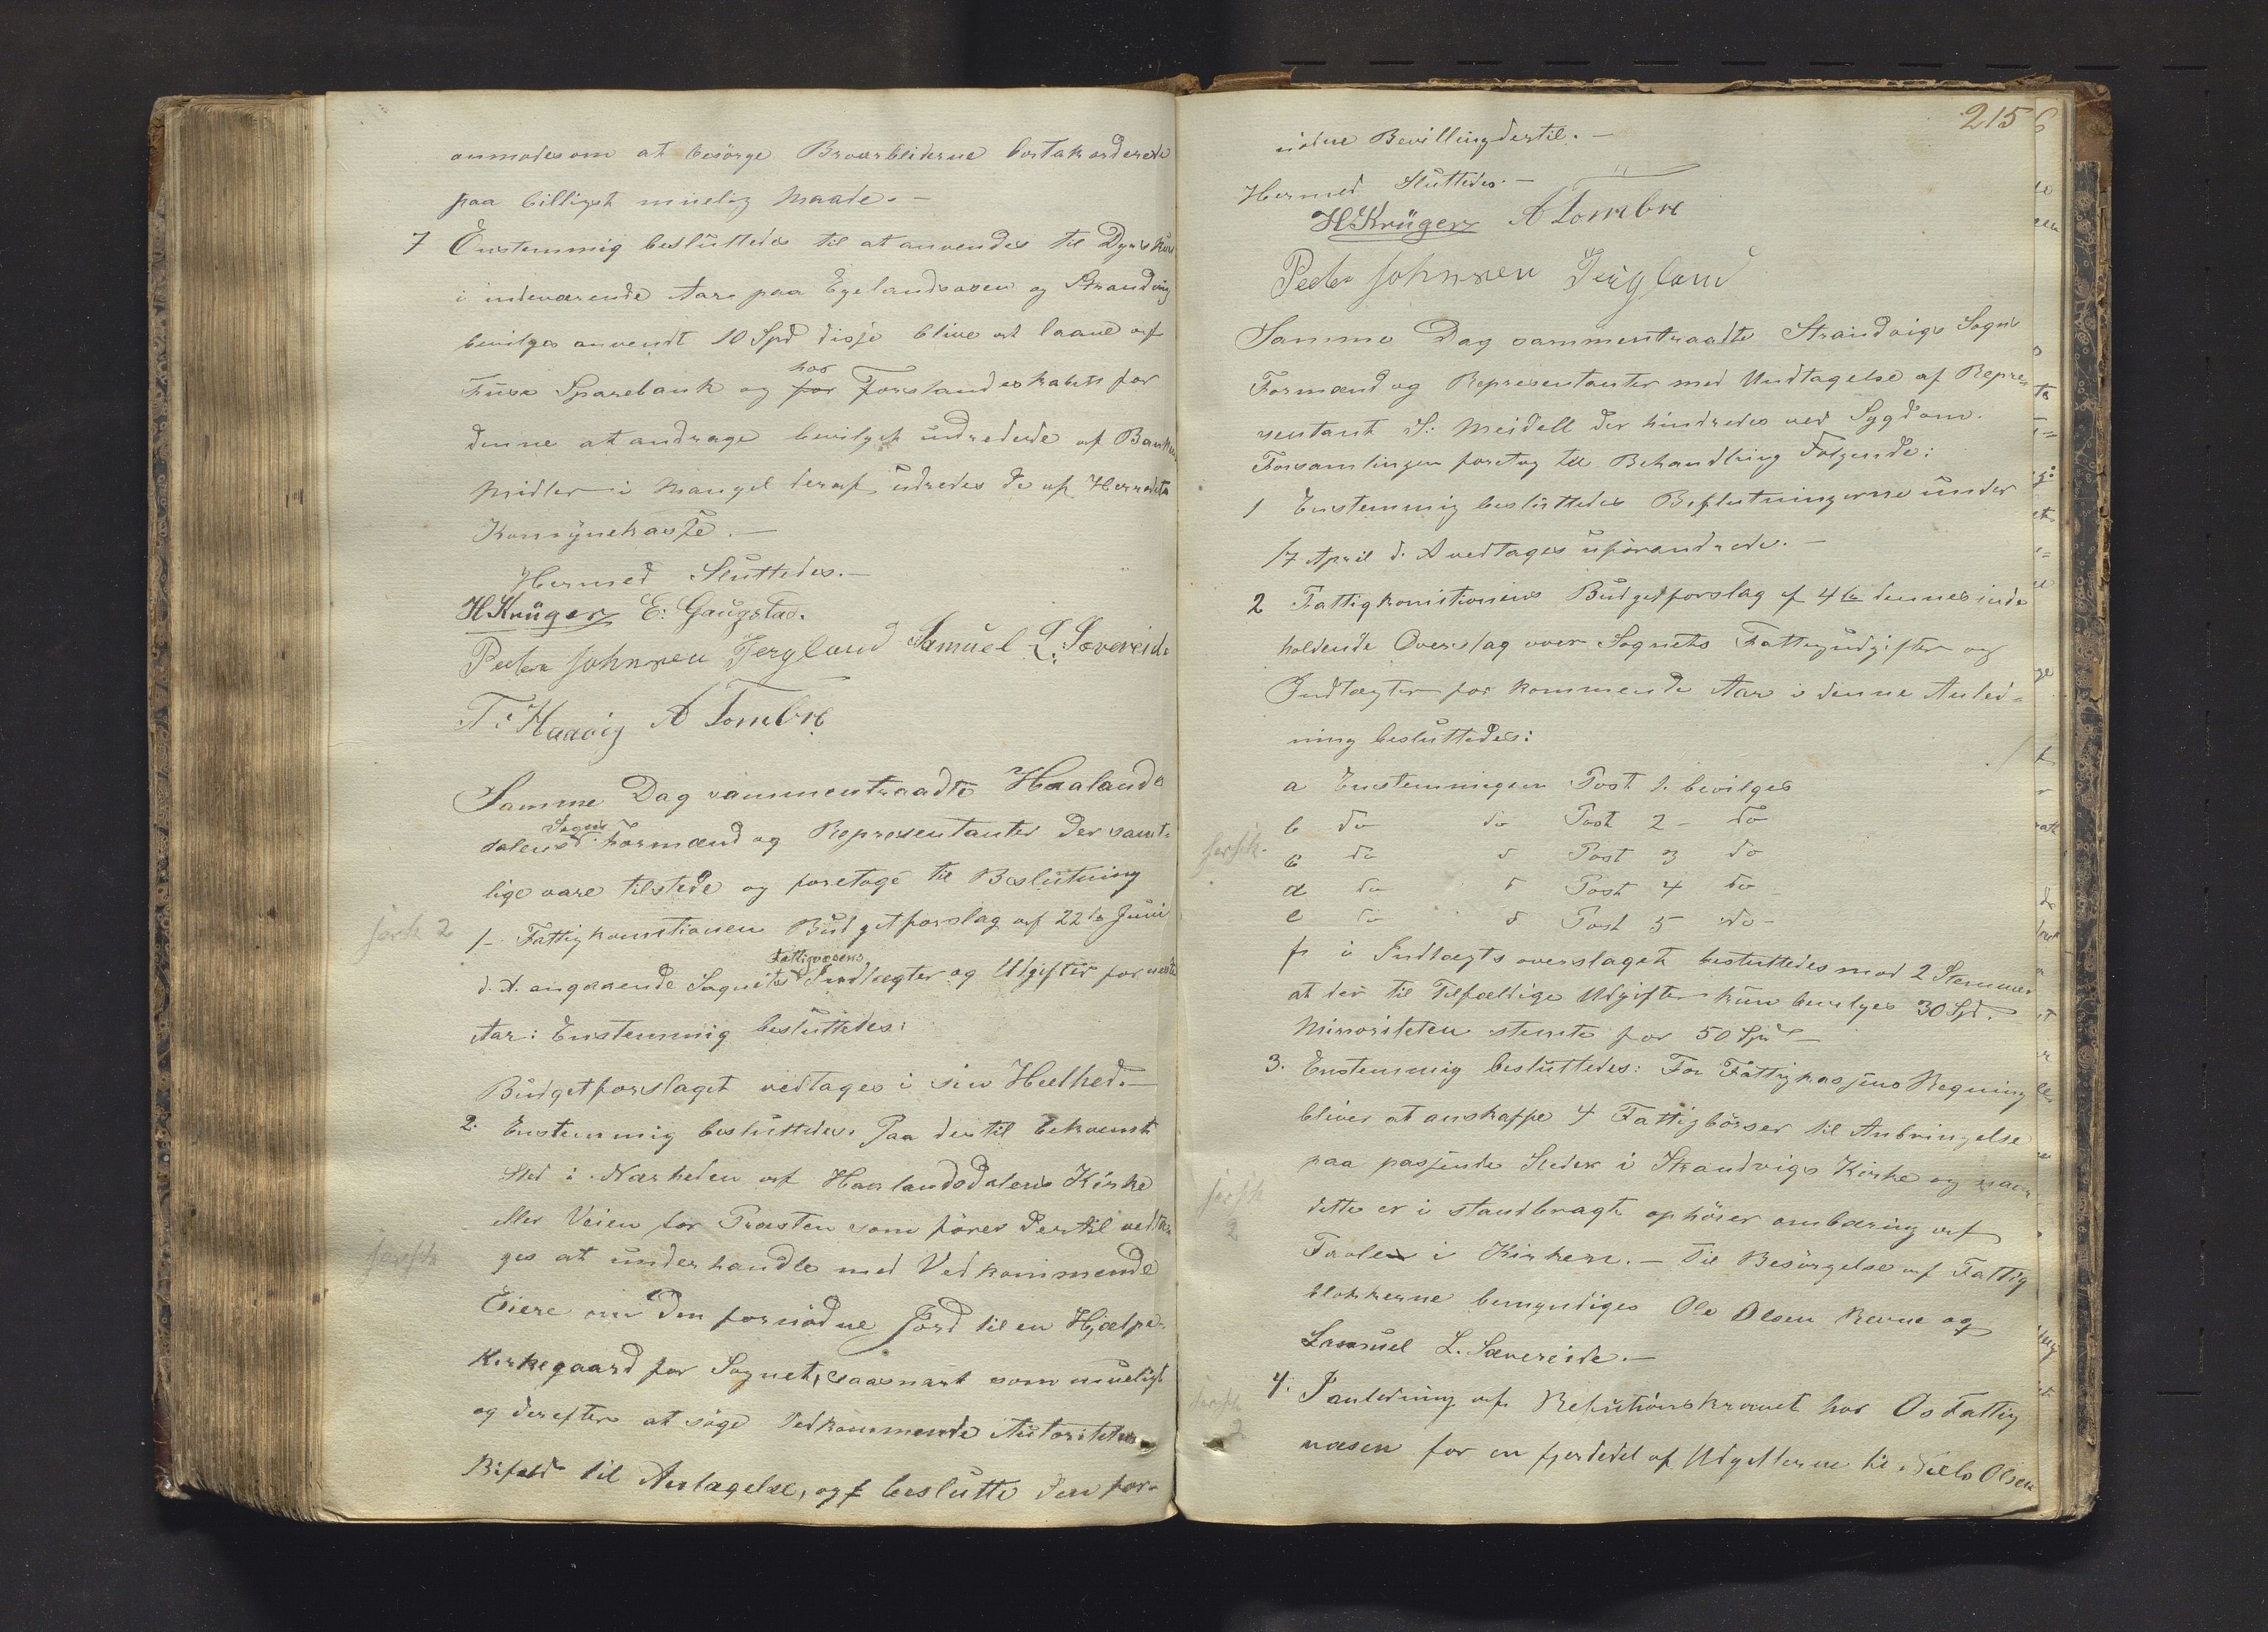 anmodes om at besörge Broarbeiderne bortakorderede
paa billigst muelig Maade. -
7 Enstemmig besluttedes til at anvendes til Dyrskue
i indeværende Aar paa Egelandsosen og Strandvig
bevilges anvendt 10 Spd disse blive at laane af
Fuse Sparebank og for Forstanderskabet for
hos
denne at andrage bevilget udredede af Bankens
Midler i Mangel deraf udredes de af Herredets
Komünekasse. -
Hermed Sluttedes. -
H Krüger E: Gaugstad.
Peder Johnsen Tergland Samuel L: Sævereide
T: Haavig A Tombre
Samme Dag sammentraadte Haalands
dalens Sogns Formænd og Representanter der samt-
lige vare tilstede og foretoge til Beslutning
fersk 2
1 - Fattigkomitionen Budgetforslag af 22de Juni
d. A. angaaende Sognets Fattigvæsens Indtægter og Udgifter for næste
Aar: Enstemmig besluttedes:
Budgetforslaget vedtages i sin Heelhed. -
2. Enstemmig besluttedes. Paa dertil bekvemt
Sted i Nærheden af Haalandsdalens Kirke
eller Veien for Præsten som förer dertil vedta-
ges at underhandle med Vedkommende
Eiere om den fornödne Jord til en Hjælpe-
Kirkegaard for Sognet, saasnart som mueligt
og derefter at söge Vedkommende Autoriteters
Bifald til Anlægelse, og beslutte den for-
215
nödne Bevilling dertil. -
Hermed Sluttedes. -
H Krüger A Tombre
Peder Johnsen Tergland
Samme Dag sammentraadte Strandvigs Sogns
Formænd og Representanter med Undtagelse af Repre-
sentant S: Meidell der hindredes ved Sygdom.
Forsamlingen foretog til Behandling Følgende:
1 Enstemmig besluttedes Beslutningerne under
17 April d. A vedtages uforandrede. -
2 Fattigkomitionens Budgetforslag af 4de dennes inde
holdende Overslag over Sognets Fattigudgifter og
Indtægter for kommende Aar i denne Anled-
ning besluttedes:
a Enstemmigen Post 1. bevilges
b do do Post 2 - do
c do d Post 3 do
d do d Post 4 do
e do d Post 5 do -
f i Indtægts overslaget besluttedes mod 2 Stemmer
at der til Tilfældige Udgifter kun bevilges 30 Spd.
Minoriteten stemte for 50 Spd -
3. Enstemmig besluttedes: For Fattigkassens Regning
bliver at anskaffe 4 Fattigbösser til Anbringelse
paa passende Steder i Strandvigs Kirke og naar
dette er i standbragt ophörer ombæring af
Tavlen i Kirken. - Til Besörgelse af Fattig
blokkerne bemyndiges Ole Olsen Revne og
Samuel L. Sævereide. -
4. I anledning af Refutionskravet hos Os Fattig
væsen for en fjerdedel af Udgifterne til Olsen